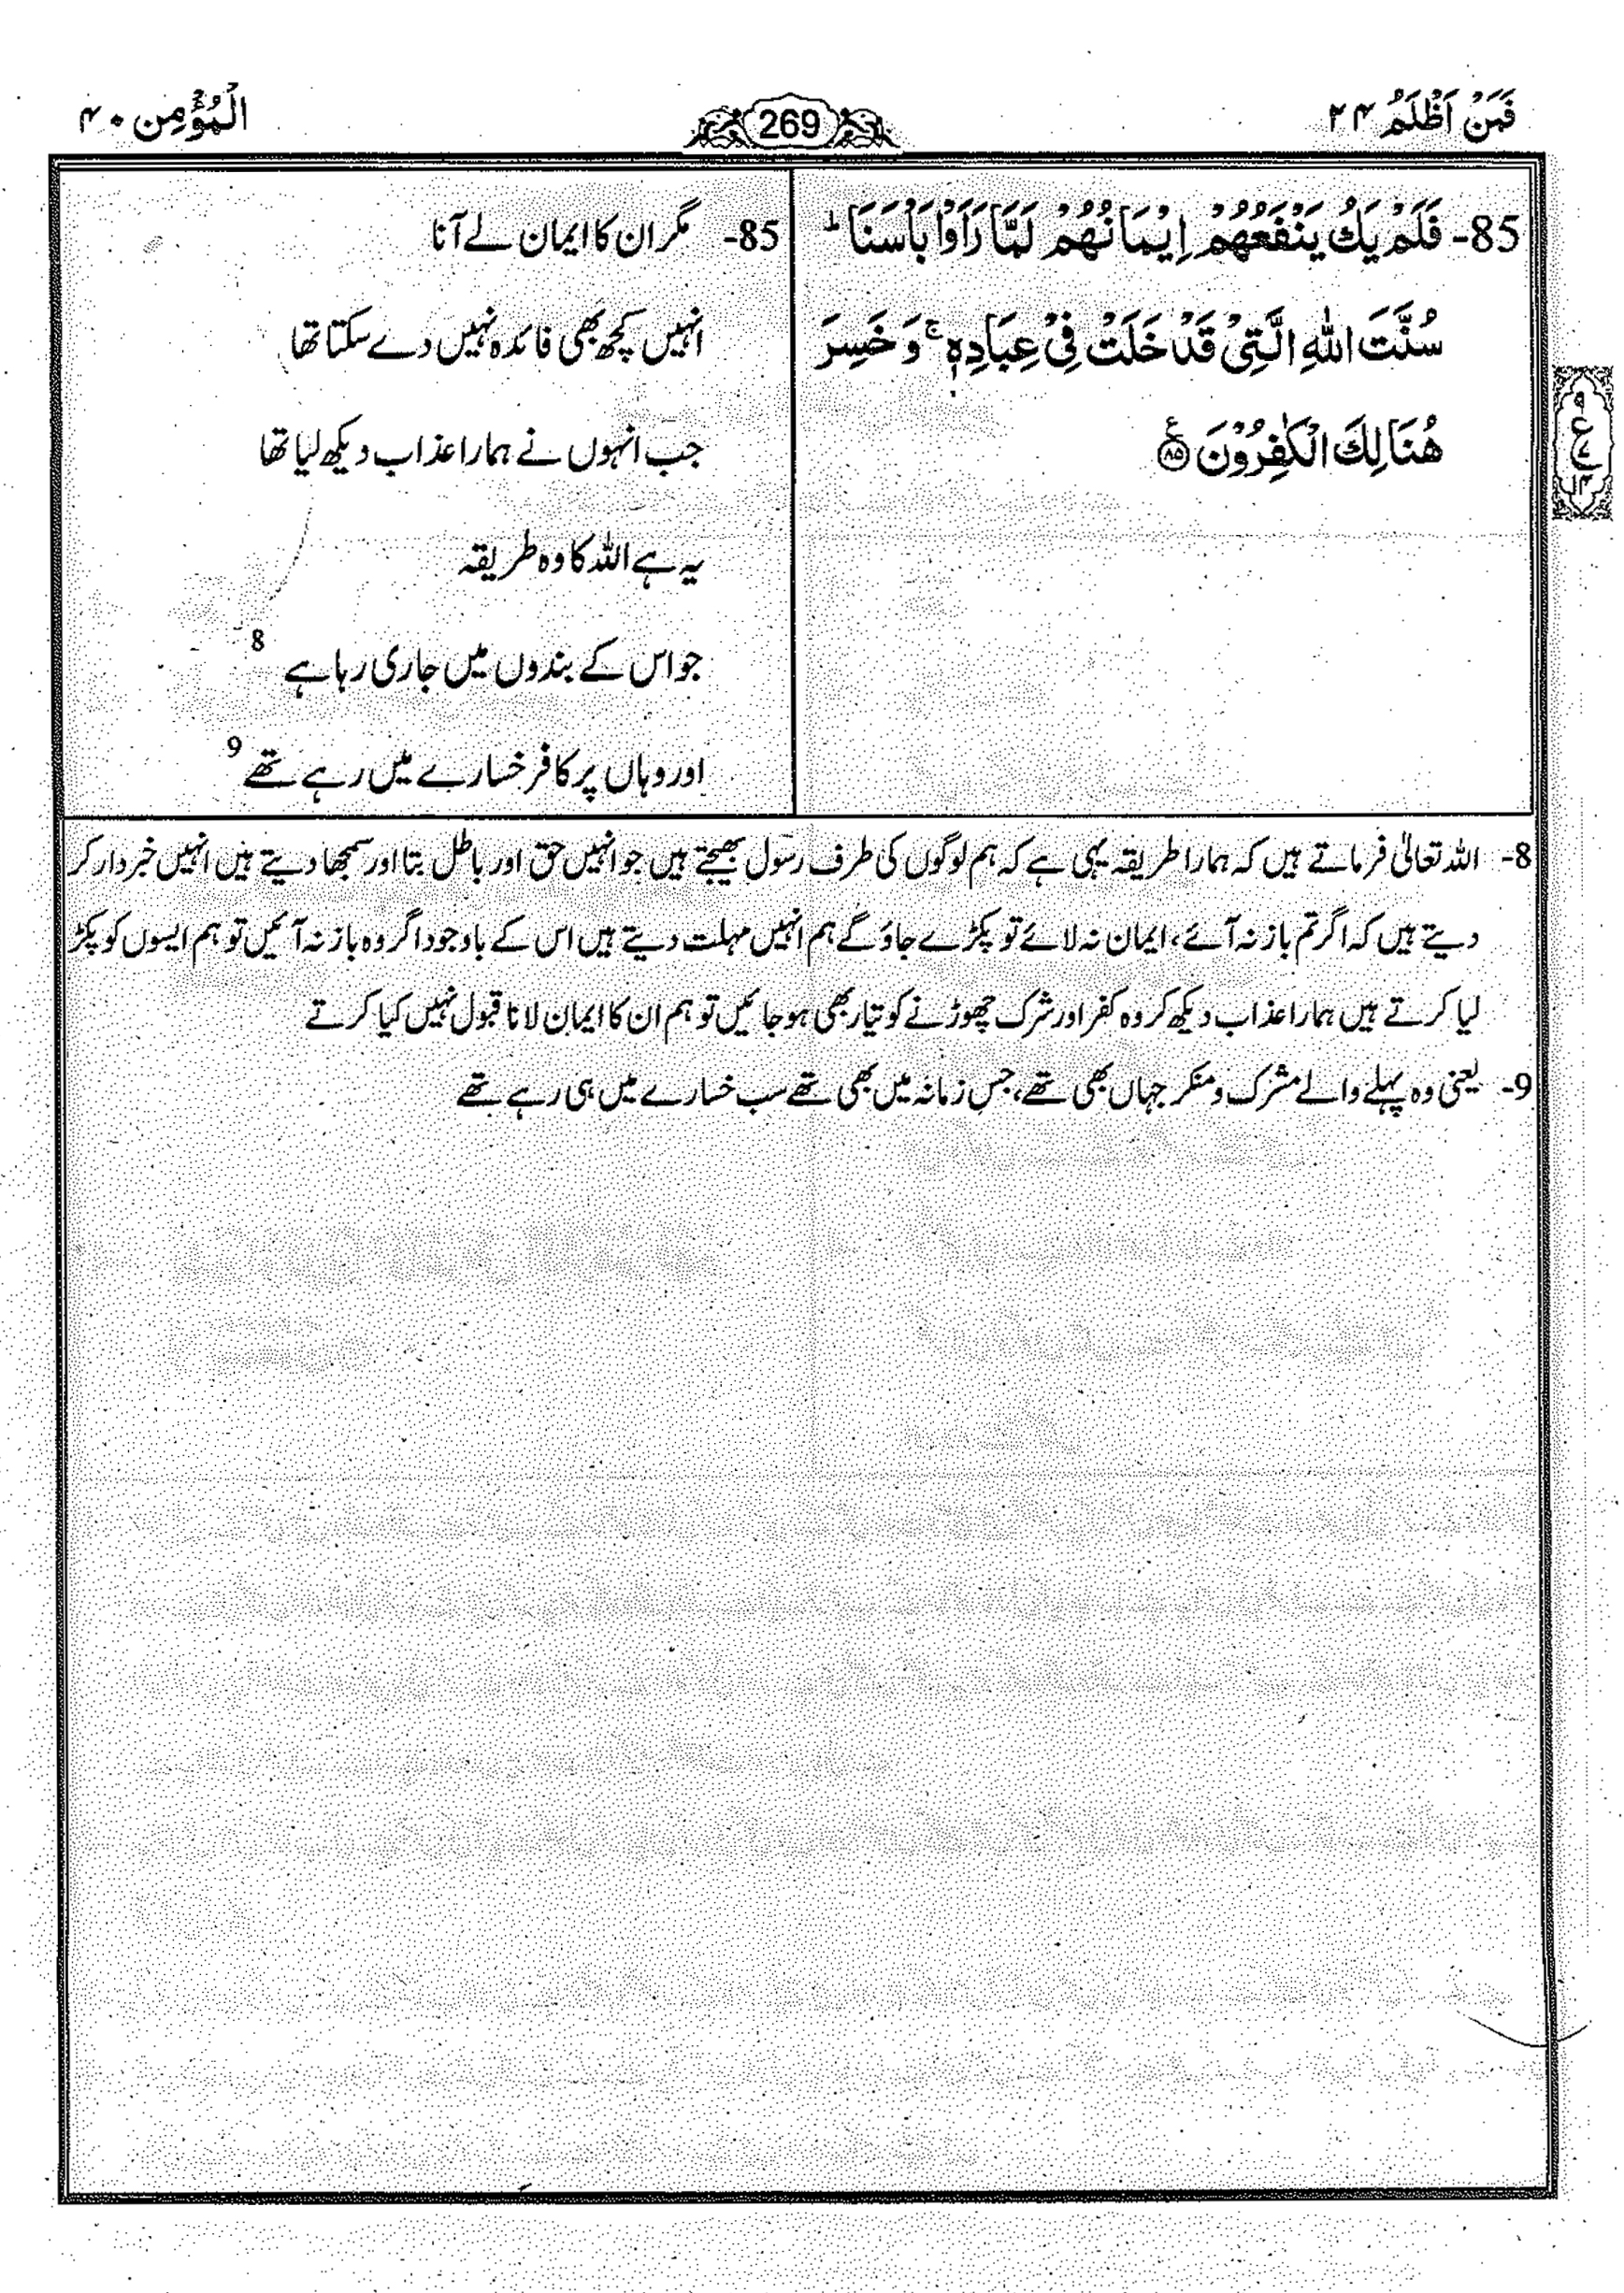 فَمَنْ اَظْلَمُ ۲۴
269
الْمُؤْمِن ۴۰
85- فَلَمْ يَكُ يَنْفَعُهُمْ اِيْمَانُهُمْ لَمَّا رَاَوْا بَاْسَنَا ؕ
سُنَّتَ اللّٰهِ الَّتِيْ قَدْ خَلَتْ فِيْ عِبَادِهٖ ۚ وَ خَسِرَ
هُنَالِكَ الْكٰفِرُوْنَ ۧ ﴿۸۵﴾
85- مگر ان کا ایمان لے آنا
انہیں کچھ بھی فائدہ نہیں دے سکتا تھا
جب انہوں نے ہمارا عذاب دیکھ لیا تھا
یہ ہے اللہ کا وہ طریقہ
جو اس کے بندوں میں جاری رہا ہے 8
اور وہاں پر کافر خسارے میں رہے تھے 9
8- اللہ تعالیٰ فرماتے ہیں کہ ہمارا طریقہ یہی ہے کہ ہم لوگوں کی طرف رسول بھیجتے ہیں جو انہیں حق اور باطل بتا اور سمجھا دیتے ہیں انہیں خبردار کر
دیتے ہیں کہ اگر تم باز نہ آئے، ایمان نہ لائے تو پکڑے جاؤ گے ہم انہیں مہلت دیتے ہیں اس کے باوجود اگر وہ باز نہ آئیں تو ہم ایسوں کو پکڑ
لیا کرتے ہیں ہمارا عذاب دیکھ کر وہ کفر اور شرک چھوڑنے کو تیار بھی ہو جائیں تو ہم ان کا ایمان لانا قبول نہیں کیا کرتے
9- یعنی وہ پہلے والے مشرک و منکر جہاں بھی تھے، جس زمانہ میں بھی تھے سب خسارے میں ہی رہے تھے